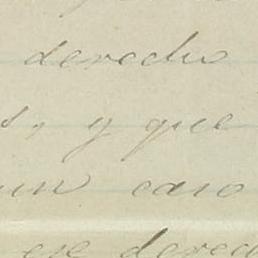 derecho
s, y que
un caso
ese derec